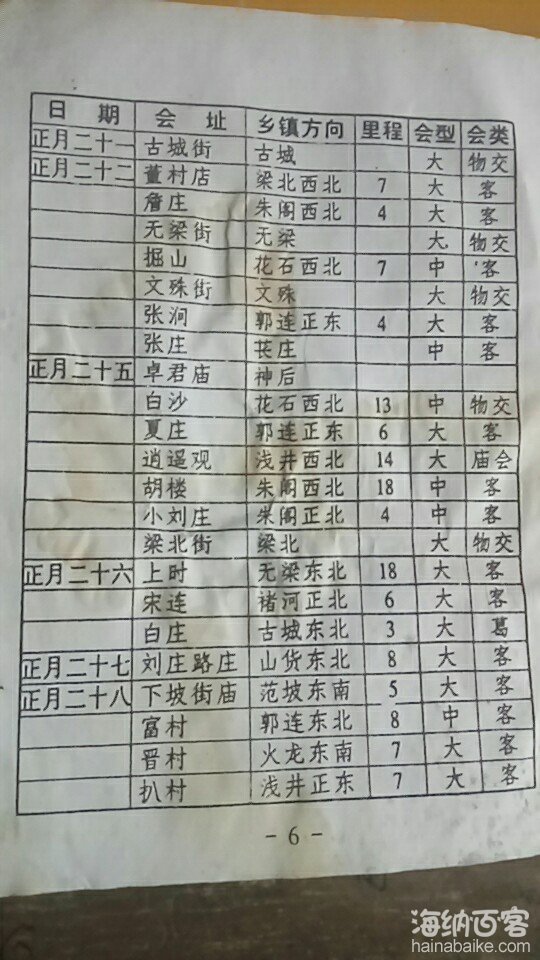 日 期 会 址 乡镇方向 里程 会型 会类
正月二十一 古城街 古城 大 物交
正月二十二 董村店 梁北西北 7 大 客
詹庄 朱阁西北 4 大 客
无梁街 无梁 大 物交
掘山 花石西北 7 中 客
文殊街 文殊 大 物交
张涧 郭连正东 4 大 客
张庄 苌庄 中 客
正月二十五 卓君庙 神后
白沙 花石西北 13 中 物交
夏庄 郭连正东 6 大 客
逍遥观 浅井西北 14 大 庙会
胡楼 朱阁西北 18 中 客
小刘庄 朱阁正北 4 中 客
梁北街 梁北 大 物交
正月二十六 上时 无梁东北 18 大 客
宋连 褚河正北 6 大 客
白庄 古城东北 3 大 葛
正月二十七 刘庄路庄 山货东北 8 大 客
正月二十八 下坡街庙 范坡东南 5 大 客
富村 郭连东北 8 中 客
晋村 火龙东南 7 大 客
扒村 浅井正东 7 大 客
- 6 -
海纳百客
hainabaike.com